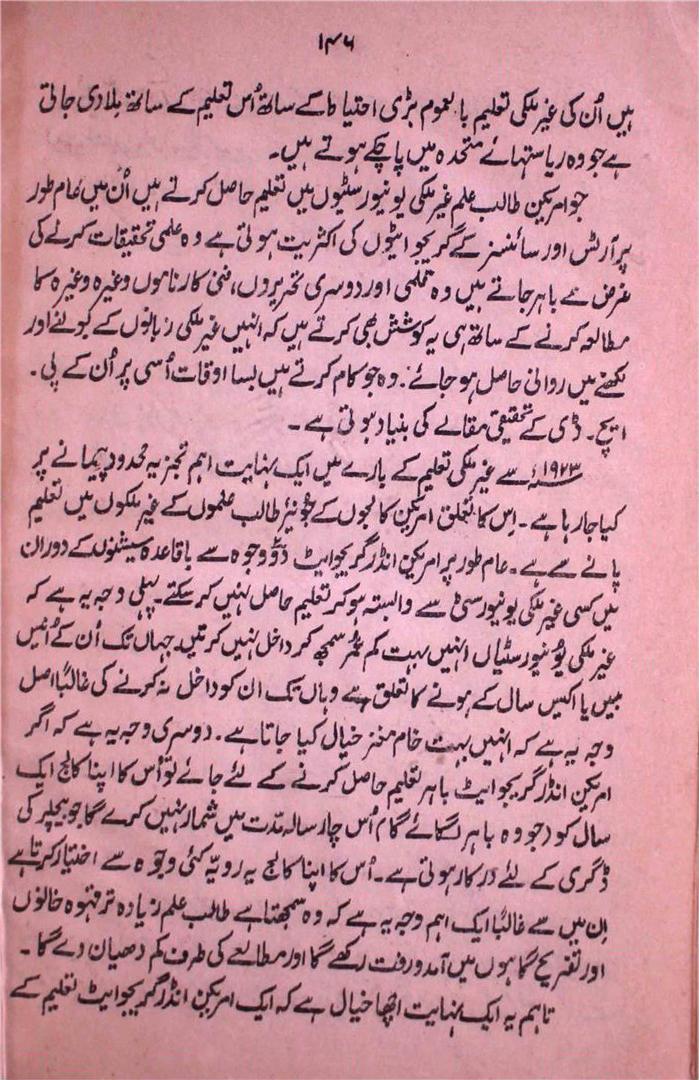 ۱۴۶
ہیں اُن کی غیر ملکی تعلیم بالعموم بڑی احتیاط کے ساتھ اُس تعلیم کے ساتھ ملادی جاتی
ہے جو وہ ریاستہائے متحدہ میں پا چکے ہوتے ہیں۔
جو امریکن طالب علم غیر ملکی یونیورسٹیوں میں تعلیم حاصل کرتے ہیں اُن میں عام طور
پر آرٹس اور سائنسز کے گریجوایٹوں کی اکثریت ہوتی ہے وہ علمی تحقیقات کرنے کی
غرض سے باہر جاتے ہیں وہ قلمی اور دوسری تحریروں، فنی کارناموں وغیرہ وغیرہ کا
مطالعہ کرنے کے ساتھ ہی یہ کوشش بھی کرتے ہیں کہ انہیں غیر ملکی زبانوں کے بولنے اور
لکھنے میں روانی حاصل ہو جائے۔ وہ جو کام کرتے ہیں بسا اوقات اُسی پر اُن کے پی۔
ایچ۔ ڈی کے تحقیقی مقالے کی بنیاد ہوتی ہے۔
۱۹۲۳ء سے غیر ملکی تعلیم کے بارے میں ایک نہایت اہم تجزیہ محدود پیمانے پر
کیا جا رہا ہے۔ اِس کا تعلق امریکن کالجوں کے جُونیئر طالب علموں کے غیر ملکوں میں تعلیم
پانے سے ہے۔ عام طور پر امریکن انڈر گریجوایٹ دَو وجوہ سے باقاعدہ سیشنوں کے دوران
میں کسی غیر ملکی یونیورسٹی سے وابستہ ہو کر تعلیم حاصل نہیں کر سکتے۔ پہلی وجہ یہ ہے کہ
غیر ملکی یُونیورسٹیاں انہیں بہت کم عمر سمجھ کر داخل نہیں کرتیں۔ جہاں تک اُن کے اُنیس
بیس یا اکیس سال کے ہونے کا تعلق ہے وہاں تک ان کو داخل نہ کرنے کی غالباً اصل
وجہ یہ ہے کہ انہیں بہت خام مغز خیال کیا جاتا ہے۔ دوسری وجہ یہ ہے کہ اگر
امریکن انڈر گریجوایٹ باہر تعلیم حاصل کرنے کے لئے جائے تو اُس کا اپنا کالج ایک
سال کو (جو وہ باہر لگائے گا) اُس چار سالہ مدت میں شمار نہیں کرے گا جو بیچلر کی
ڈگری کے لئے درکار ہوتی ہے۔ اُس کا اپنا کالج یہ رویّہ کئی وجوہ سے اختیار کرتا ہے
اِن میں سے غالباً ایک اہم وجہ یہ ہے کہ وہ سمجھتا ہے طالب علم زیادہ تر قہوہ خانوں
اور تفریح گاہوں میں آمد و رفت رکھے گا اور مطالعے کی طرف کم دھیان دے گا۔
تاہم یہ ایک نہایت اچھا خیال ہے کہ ایک امریکن انڈر گریجوایٹ تعلیم کے